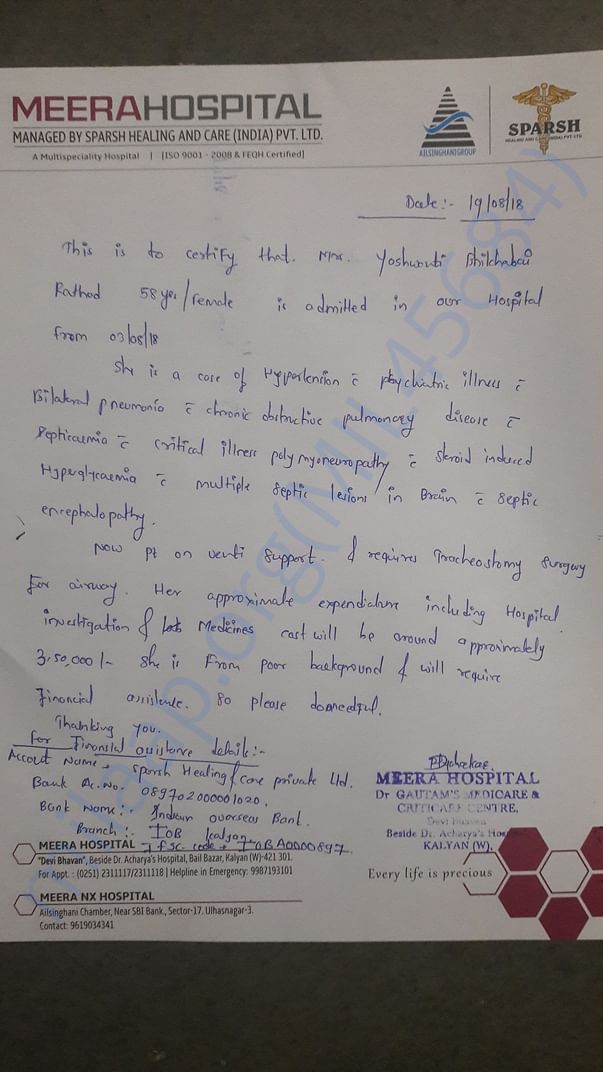 MEERAHOSPITAL
MANAGED BY SPARSH HEALING AND CARE (INDIA) PVT. LTD.
A Multispeciality Hospital | [ISO 9001 - 2008 & FEQH Certified]
AILSINGHANIGROUP
SPARSH
HEALING AND CARE (INDIA) PVT. LTD
Date:- 19/08/18
This is to certify that. Mrs. Yoshwanti Bhikhabai
Rathod 58 yrs/Female is admitted in our Hospital
From 03/08/18
She is a case of Hypertension c̄ psychiatric illness c̄
Bilateral pneumonia c̄ chronic obstructive pulmonary disease c̄
Septicaemia c̄ critical illness polymyoneuropathy c̄ steroid induced
Hyperglycaemia c̄ multiple septic lesions in Brain c̄ septic
encephalopathy.
Now pt on venti support. & requires Tracheostomy surgery
For airway. Her approximate expenditure including Hospital
investigation & Medicines cost will be around approximately
3,50,000/- She is From poor background & will require
Financial assistance. So please doneedful.
Thanking you.
For Financial assistance details:-
Account Name - Sparsh Healing & care private Ltd.
Bank Ac. No. 089702000001020.
Bank Name:- Indian overseas Bank.
Branch:- IOB Kalyan.
IFSC code - IOBA0000897.
MEERA HOSPITAL
Dr GAUTAM'S MEDICARE &
CRITICARE CENTRE.
Devi Bhavan
Beside Dr. Acharya's Hos
KALYAN (W).
MEERA HOSPITAL
"Devi Bhavan", Beside Dr. Acharya's Hospital, Bail Bazar, Kalyan (W)-421 301.
For Appt. : (0251) 2311117/2311118 | Helpline in Emergency: 9987193101
Every life is precious
MEERA NX HOSPITAL
Ailsinghani Chamber, Near SBI Bank., Sector-17. Ulhasnagar-3.
Contact: 9619034341
milaap.org(MIL45684)